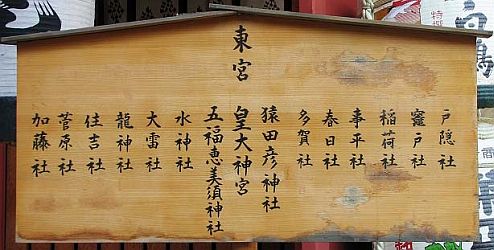 東宮
戸隠社
竈戸社
稲荷社
事平社
春日社
多賀社
猿田彦神社
皇大神宮
五福恵美須神社
水神社
大雷社
龍神社
住吉社
菅原社
加藤社
特撰
白鳥